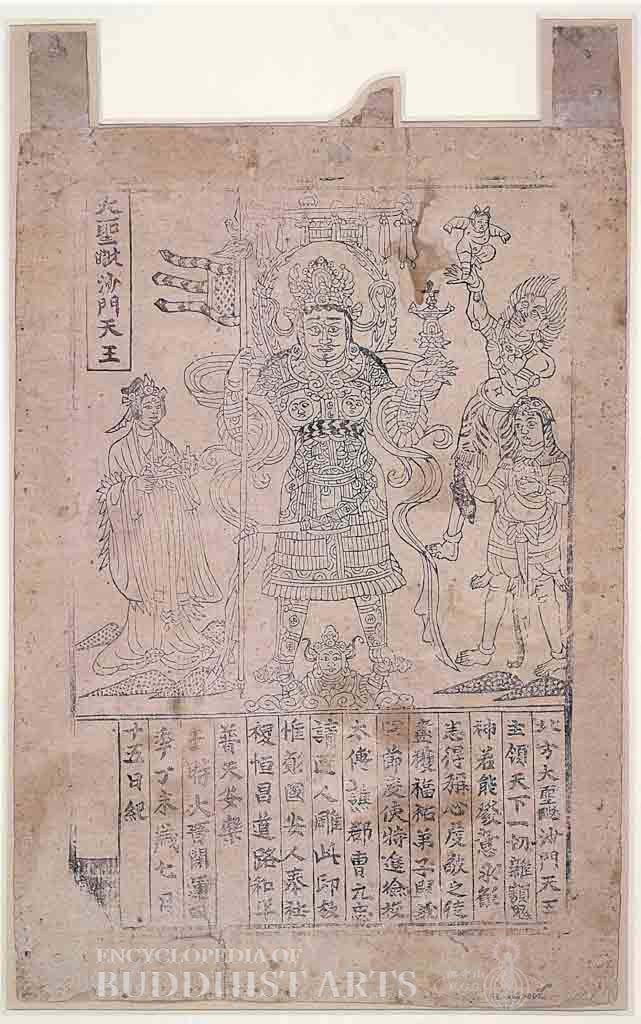 大聖毗沙門天王
北方大聖毗沙門天王
主領天下一切雜類鬼
神若能發意求願
悉得稱心虔敬之徒
盡獲福祐弟子歸義
軍節度使特進檢校
太傅譙郡曹元忠
請匠人雕此印板
惟願國安人泰社
稷恒昌道路和平
普天安樂
于時大晉開運四
年丁未歲七月
十五日紀
ENCYCLOPEDIA OF
BUDDHIST ARTS